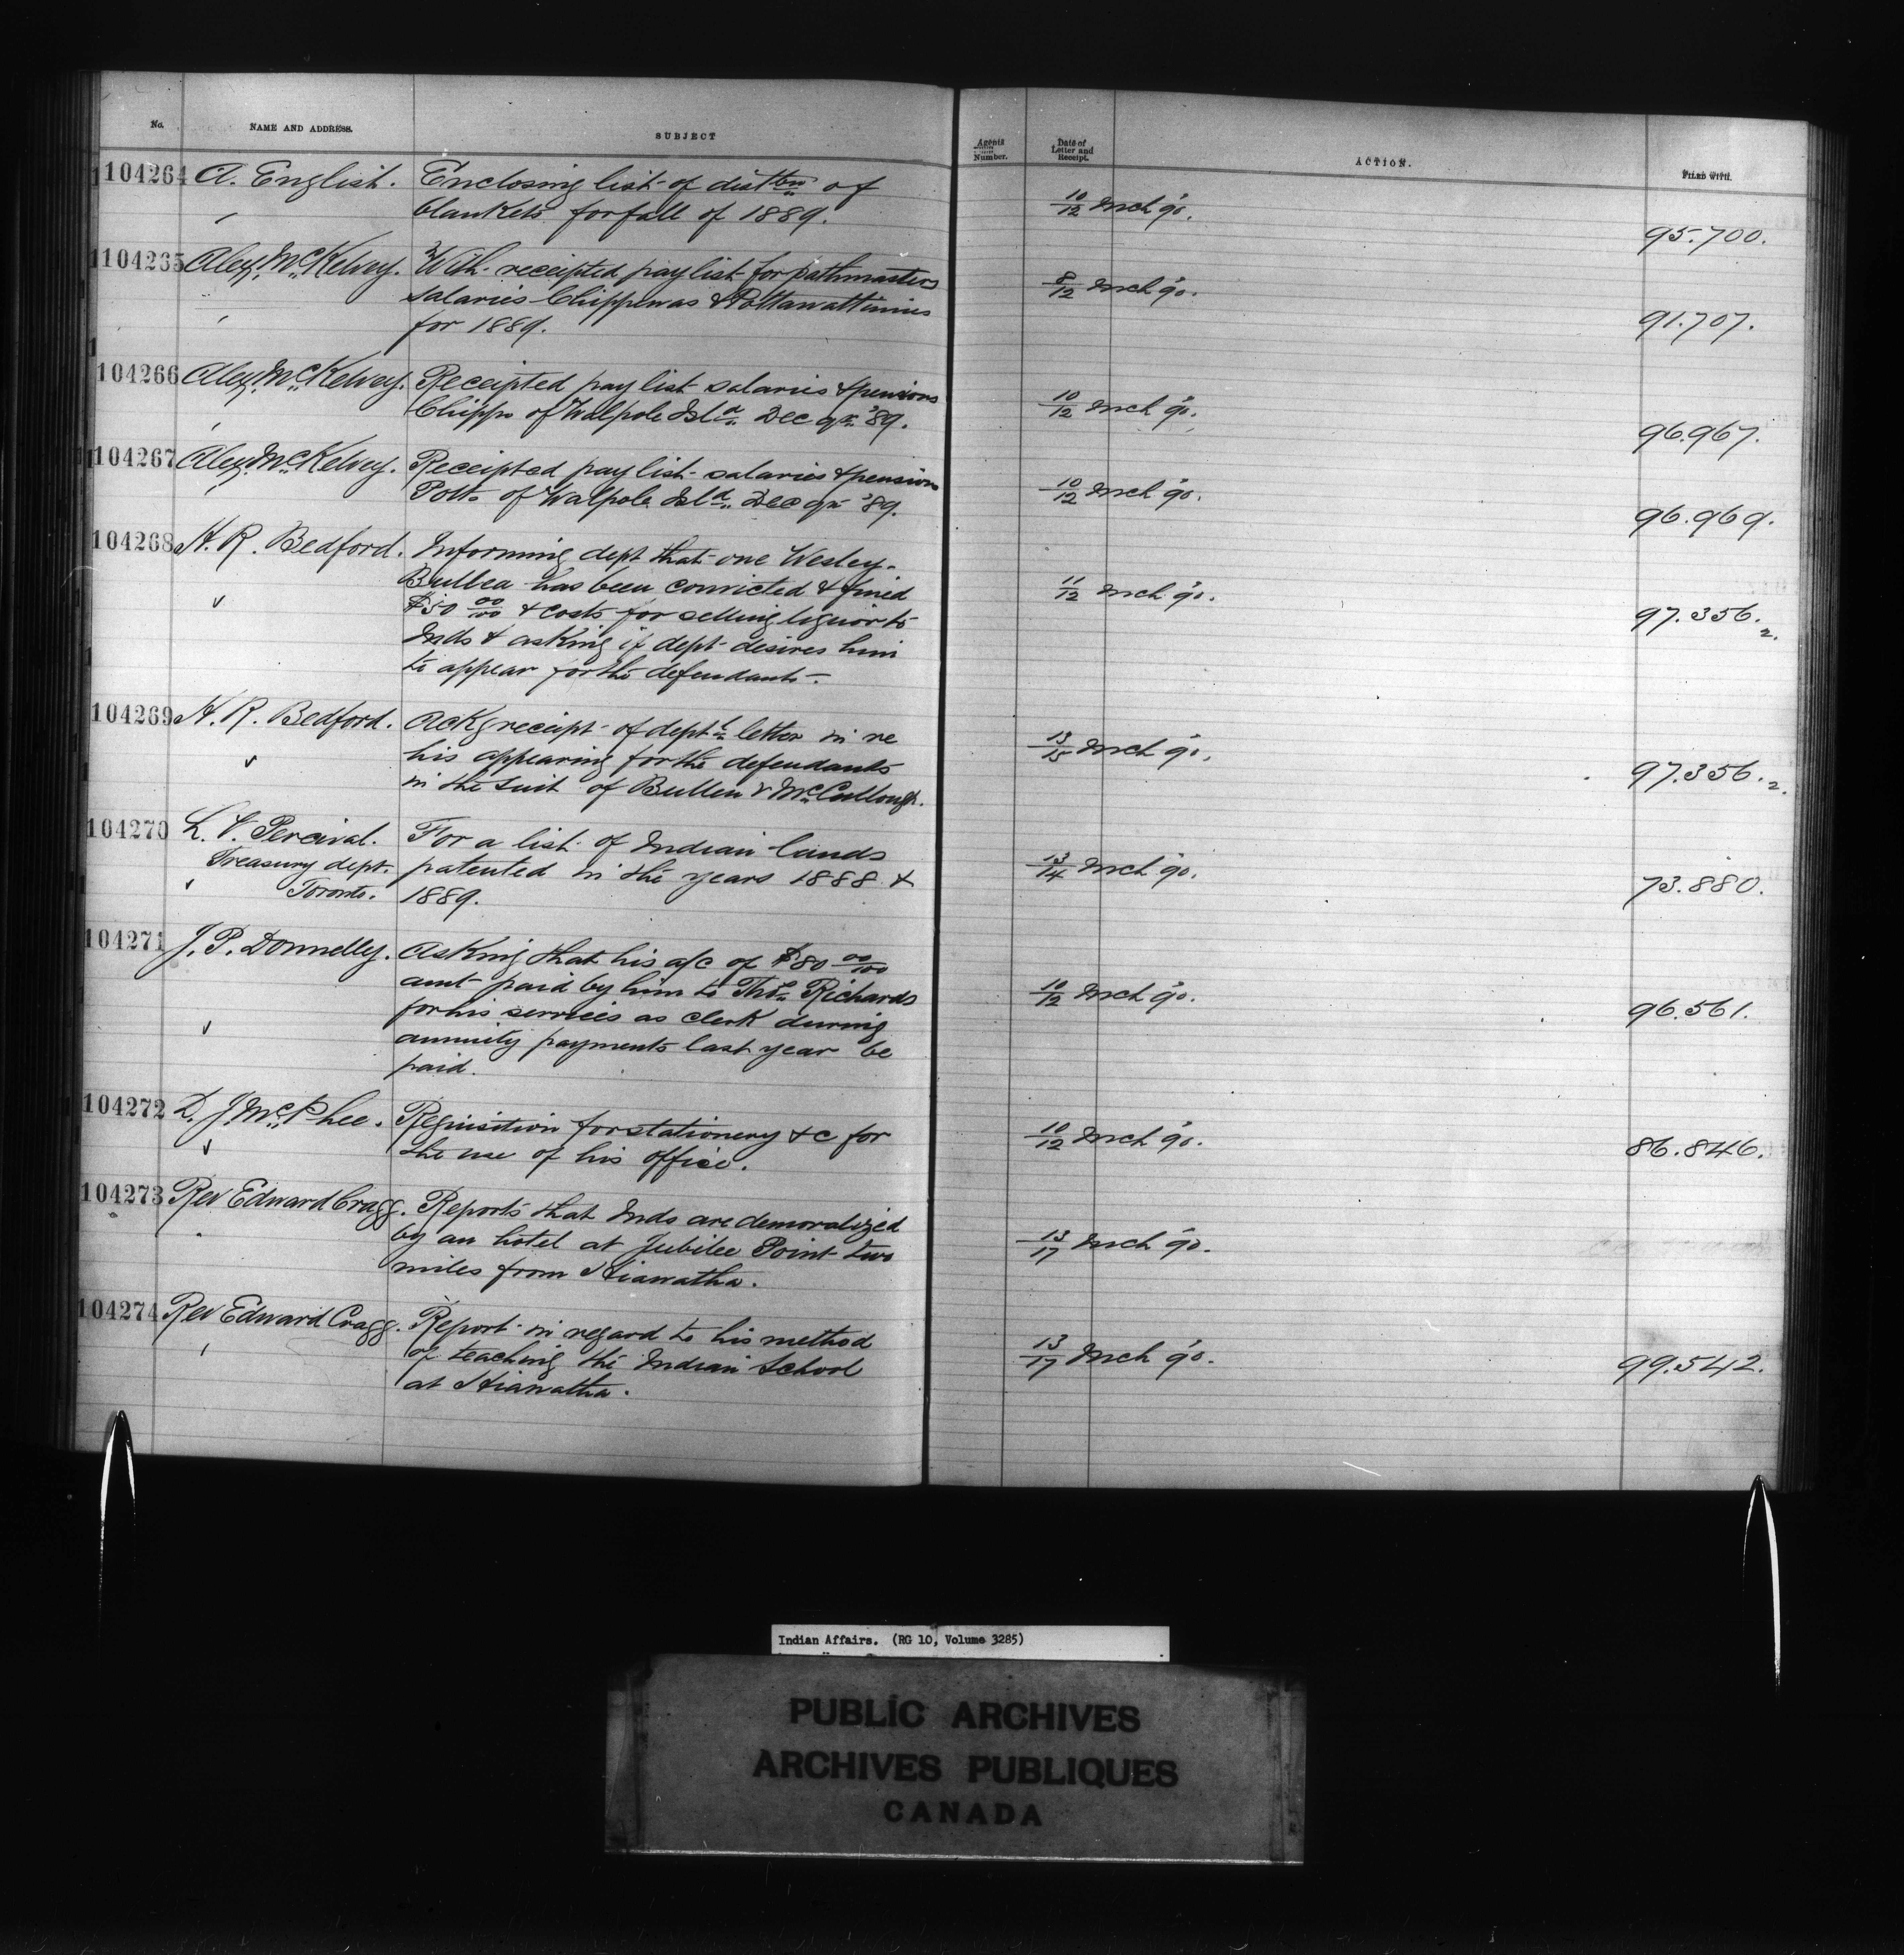 No. NAME AND ADDRESS. SUBJECT Agents Number. Date of Letter and Receipt. ACTION. FILED WITH.
104264 A. English. Enclosing list of distbn of
blankets for fall of 1889. 10/12 Mch '90. 95.700.
104265 Alex. McKelvey. With receipted pay list for pathmasters
salaries Chippewas & Pottawattimies 8/12 Mch '90.
for 1889. 91.707.
104266 Alex. McKelvey. Receipted pay list salaries & pensions
Chipps of Walpole Isld. Dec qr '89. 10/12 Mch '90. 96.967.
104267 Alex. McKelvey. Receipted pay list salaries & pensions
Potts of Walpole Isld. Dec qr '89. 10/12 Mch '90. 96.969.
104268 H. R. Bedford. Informing dept that one Wesley
Bulbea has been convicted & fined
$50 00/100 & costs for selling liquor to 11/12 Mch '90. 97.356.2.
Inds & asking if dept desires him
to appear for the defendants.
104269 H. R. Bedford. Ackg receipt of dept's letter in re
his appearing for the defendants 13/15 Mch '90.
in the suit of Bullen v McCullough. 97.356.2.
104270 L. V. Percival. For a list of Indian lands
Treasury dept. patented in the years 1888 & 13/14 Mch '90.
Toronto. 1889. 73.880.
104271 J. P. Donnelly. Asking that his a/c of $80 00/100
amt paid by him to Thos. Richards 10/12 Mch '90.
for his services as clerk during 96.561.
annuity payments last year be
paid.
104272 D. J. McPhee. Requisition for stationery &c for
the use of his office. 10/12 Mch '90. 86.846.
104273 Rev Edward Cragg. Reports that Inds are demoralized
by an hotel at Jubilee Point two 13/17 Mch '90.
miles from Hiawatha.
104274 Rev Edward Cragg. Report in regard to his method
of teaching the Indian School 13/17 Mch '90. 99.542.
at Hiawatha.
Indian Affairs. (RG 10, Volume 3285)
PUBLIC ARCHIVES
ARCHIVES PUBLIQUES
CANADA